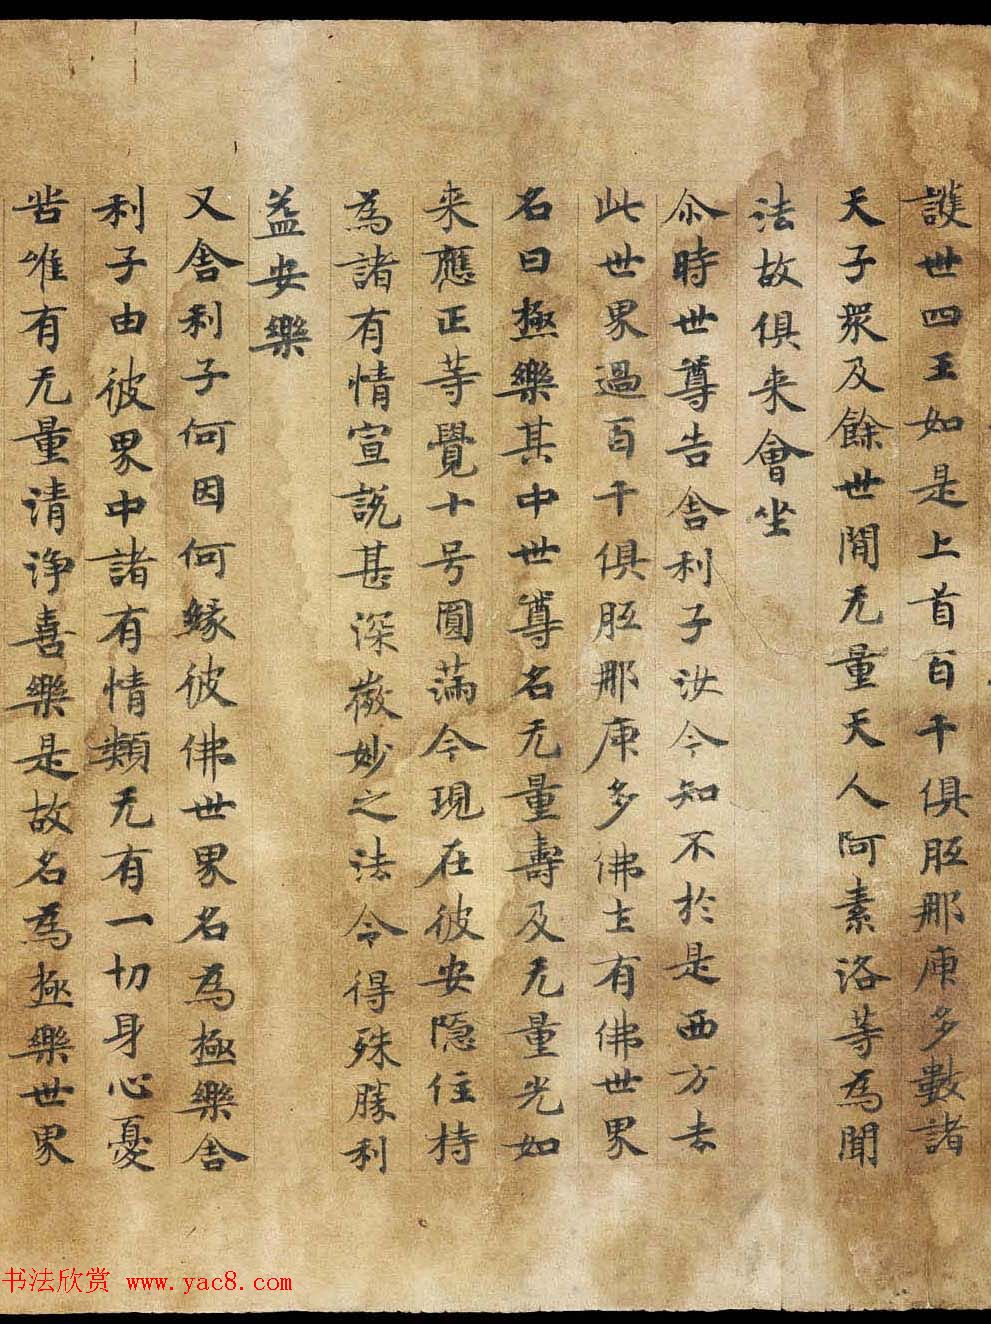 護世四王如是上首百千俱胝那庾多數諸
天子衆及餘世間无量天人阿素洛等為聞
法故俱来會坐
尒時世尊告舍利子汝今知不於是西方去
此世界過百千俱胝那庾多佛土有佛世界
名曰極樂其中世尊名无量壽及无量光如
来應正等覺十号圓滿今現在彼安隱住持
為諸有情宣說甚深微妙之法令得殊勝利
益安樂
又舍利子何因何緣彼佛世界名為極樂舍
利子由彼界中諸有情類无有一切身心憂
苦唯有无量清淨喜樂是故名為極樂世界
书法欣赏 www.yac8.com